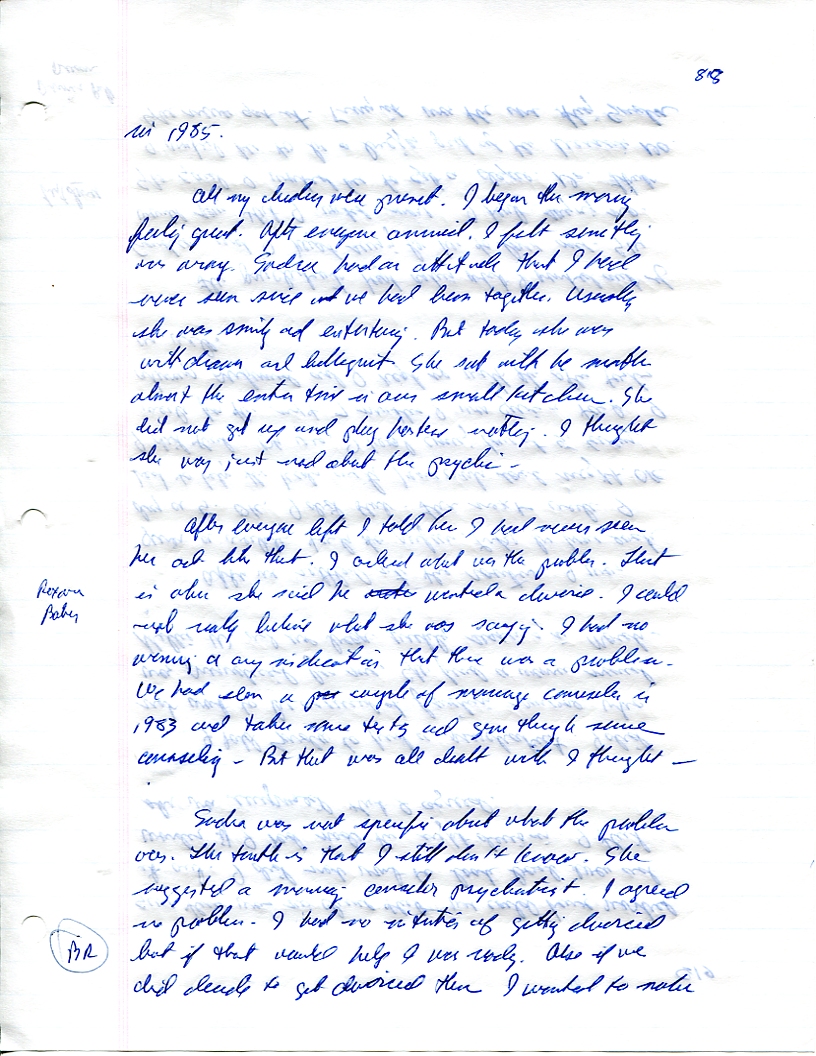 in 1985.
All my children were present. I began the morning
feeling great. After everyone arrived, I felt something
was wrong. Sandra had an attitude that I had
never seen since we had been together. Usually
she was smiling and entertaining. But today she was
withdrawn and belligerent. She sat with her mother
almost the entire time in our small kitchen. She
did not get up and play hostess nothing. I thought
she was just mad about the psychic -
After everyone left I told her I had never seen
her act like that. I asked what was the problem. That
is when she said she wanted a divorce. I could
not really believe what she was saying. I had no
warning or any indication that there was a problem.
We had seen a couple of marriage counselors in
1983 and taken some tests and gone through some
counseling - But that was all dealt with I thought -
Sandra was not specific about what the problem
was. The truth is that I still don't know. She
suggested a marriage counselor psychiatrist. I agreed
no problem. I had no intention of getting divorced
but if that would help I was ready. Also if we
did decide to get divorced then I wanted to make
Baby
BR